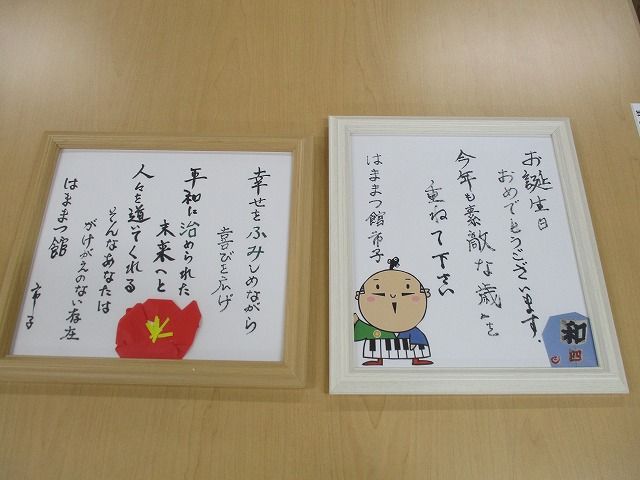 幸せをふみしめながら
喜びを広げ
平和に治められた
未来へと
人々を導いてくれる
そんなあなたは
かけがえのない存在
はままつ館
市子
お誕生日
おめでとうございます。
今年も素敵な歳を
重ねて下さい
はままつ館 市子
和